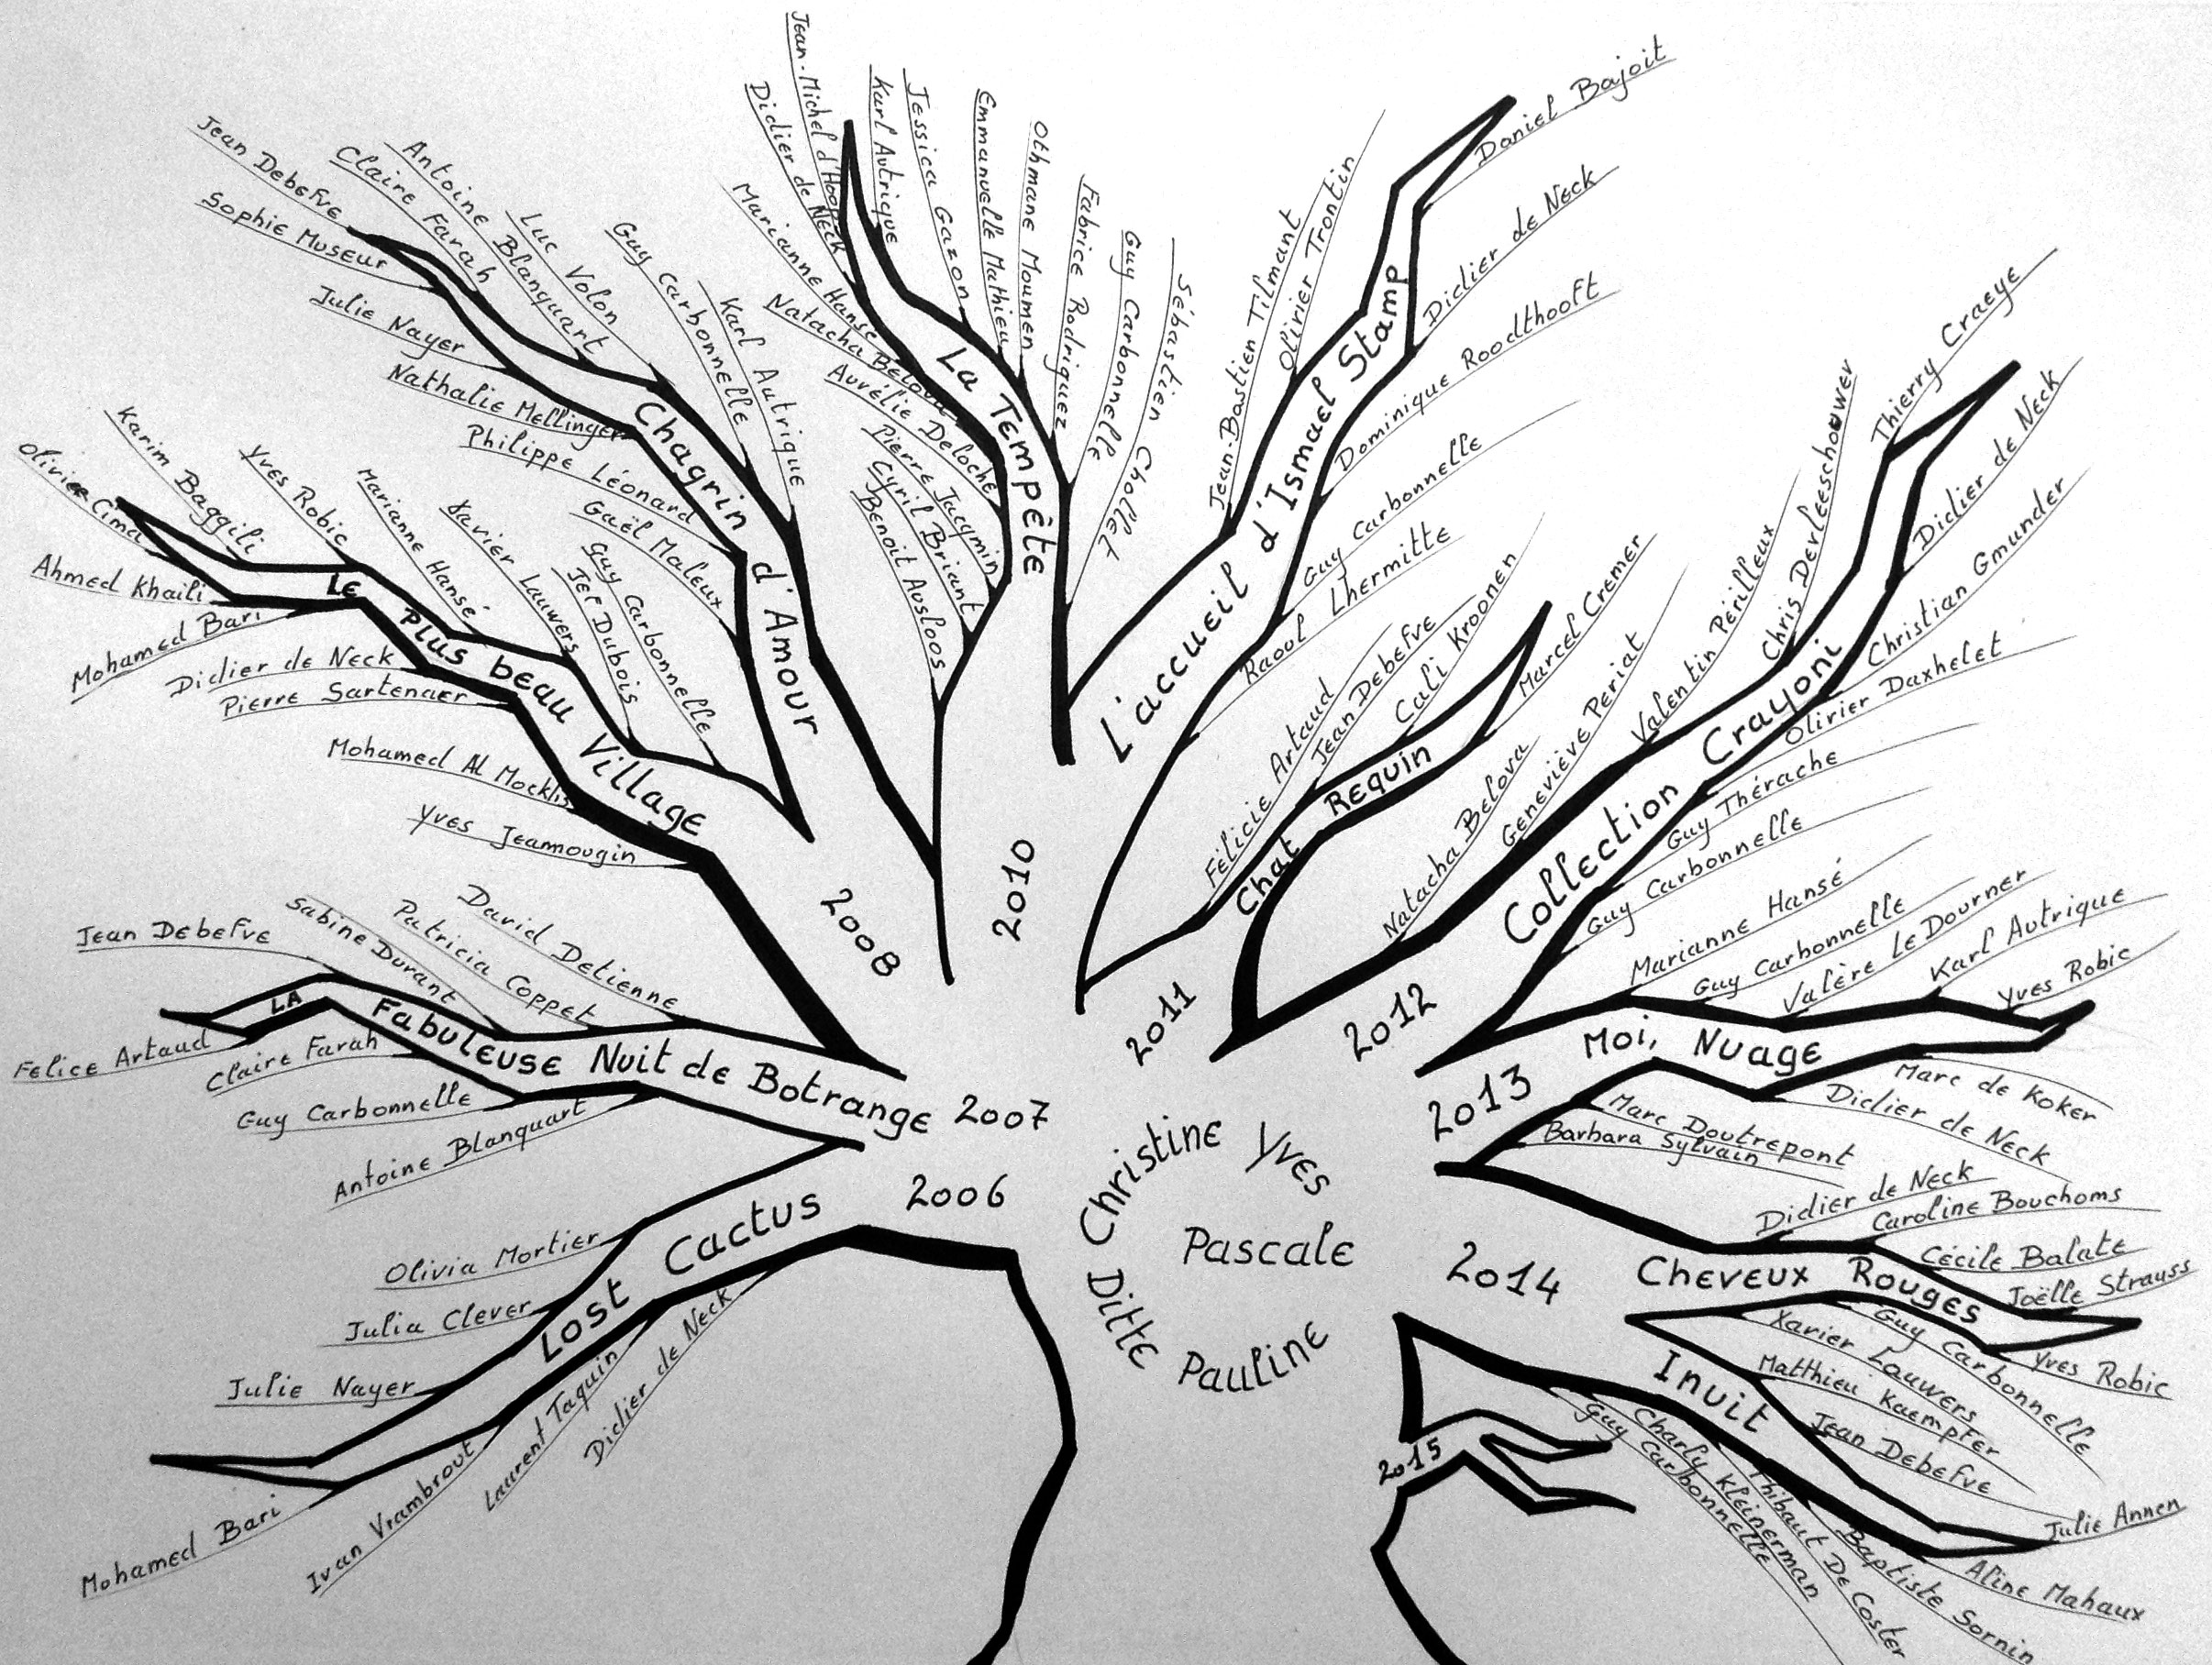 Christine
Yves
Pascale
Ditte
Pauline
2006
Lost Cactus
Olivia Mortier
Julia Clever
Julie Nayer
Mohamed Bari
Ivan Vrambrout
Laurent Taquin
Didier de Neck
2007
La Fabuleuse Nuit de Botrange
Jean Debefve
Sabine Durant
Patricia Coppet
David Detienne
Felice Artaud
Claire Farah
Guy Carbonnelle
Antoine Blanquart
2008
Le Plus beau Village
Olivier Cima
Karim Baggili
Yves Robic
Marianne Hansé
Xavier Lauwers
Jef Dubois
Guy Carbonnelle
Ahmed Khaili
Mohamed Bari
Didier de Neck
Pierre Sartenaer
Mohamed Al Mocklis
Yves Jeanmougin
Chagrin d'Amour
Jean Debefve
Claire Farah
Antoine Blanquart
Luc Volon
Guy Carbonnelle
Karl Autrique
Sophie Museur
Julie Nayer
Nathalie Mellinger
Philippe Léonard
Gaël Maleux
2010
La Tempête
Jean-Michel d'Hoop
Didier de Neck
Marianne Hansé
Natacha Belova
Aurélie Deloche
Pierre Jacqmin
Cyril Briant
Benoit Ausloos
Karl Autrique
Jessica Gazon
Emmanuelle Mathieu
Othmane Moumen
Fabrice Rodriguez
Guy Carbonnelle
Sébastien Chollet
L'accueil d'Ismael Stamp
Jean-Bastien Tilmant
Olivier Trontin
Daniel Bajoit
Didier de Neck
Dominique Roodthooft
Guy Carbonnelle
Raoul Lhermitte
2011
Chat Requin
Félicie Artaud
Jean Debefve
Cali Kroonen
Marcel Cremer
2012
Collection Crayoni
Natacha Belova
Geneviève Periat
Valentin Périlleux
Chris Devleeschouwer
Thierry Craeye
Didier de Neck
Christian Gmunder
Olivier Daxhelet
Guy Thérache
Guy Carbonnelle
2013
Moi, Nuage
Marianne Hansé
Guy Carbonnelle
Valère Le Dourner
Karl Autrique
Yves Robic
Marc de Koker
Didier de Neck
Marc Doutrepont
Barbara Sylvain
2014
Cheveux Rouges
Didier de Neck
Caroline Bouchoms
Cécile Balate
Joëlle Strauss
Yves Robic
Guy Carbonnelle
Xavier Lauwers
Inuit
Matthieu Kaempfer
Jean Debefve
Julie Annen
Aline Mahaux
Baptiste Sornin
Thibaut De Coster
Charly Kleinerman
Guy Carbonnelle
2015